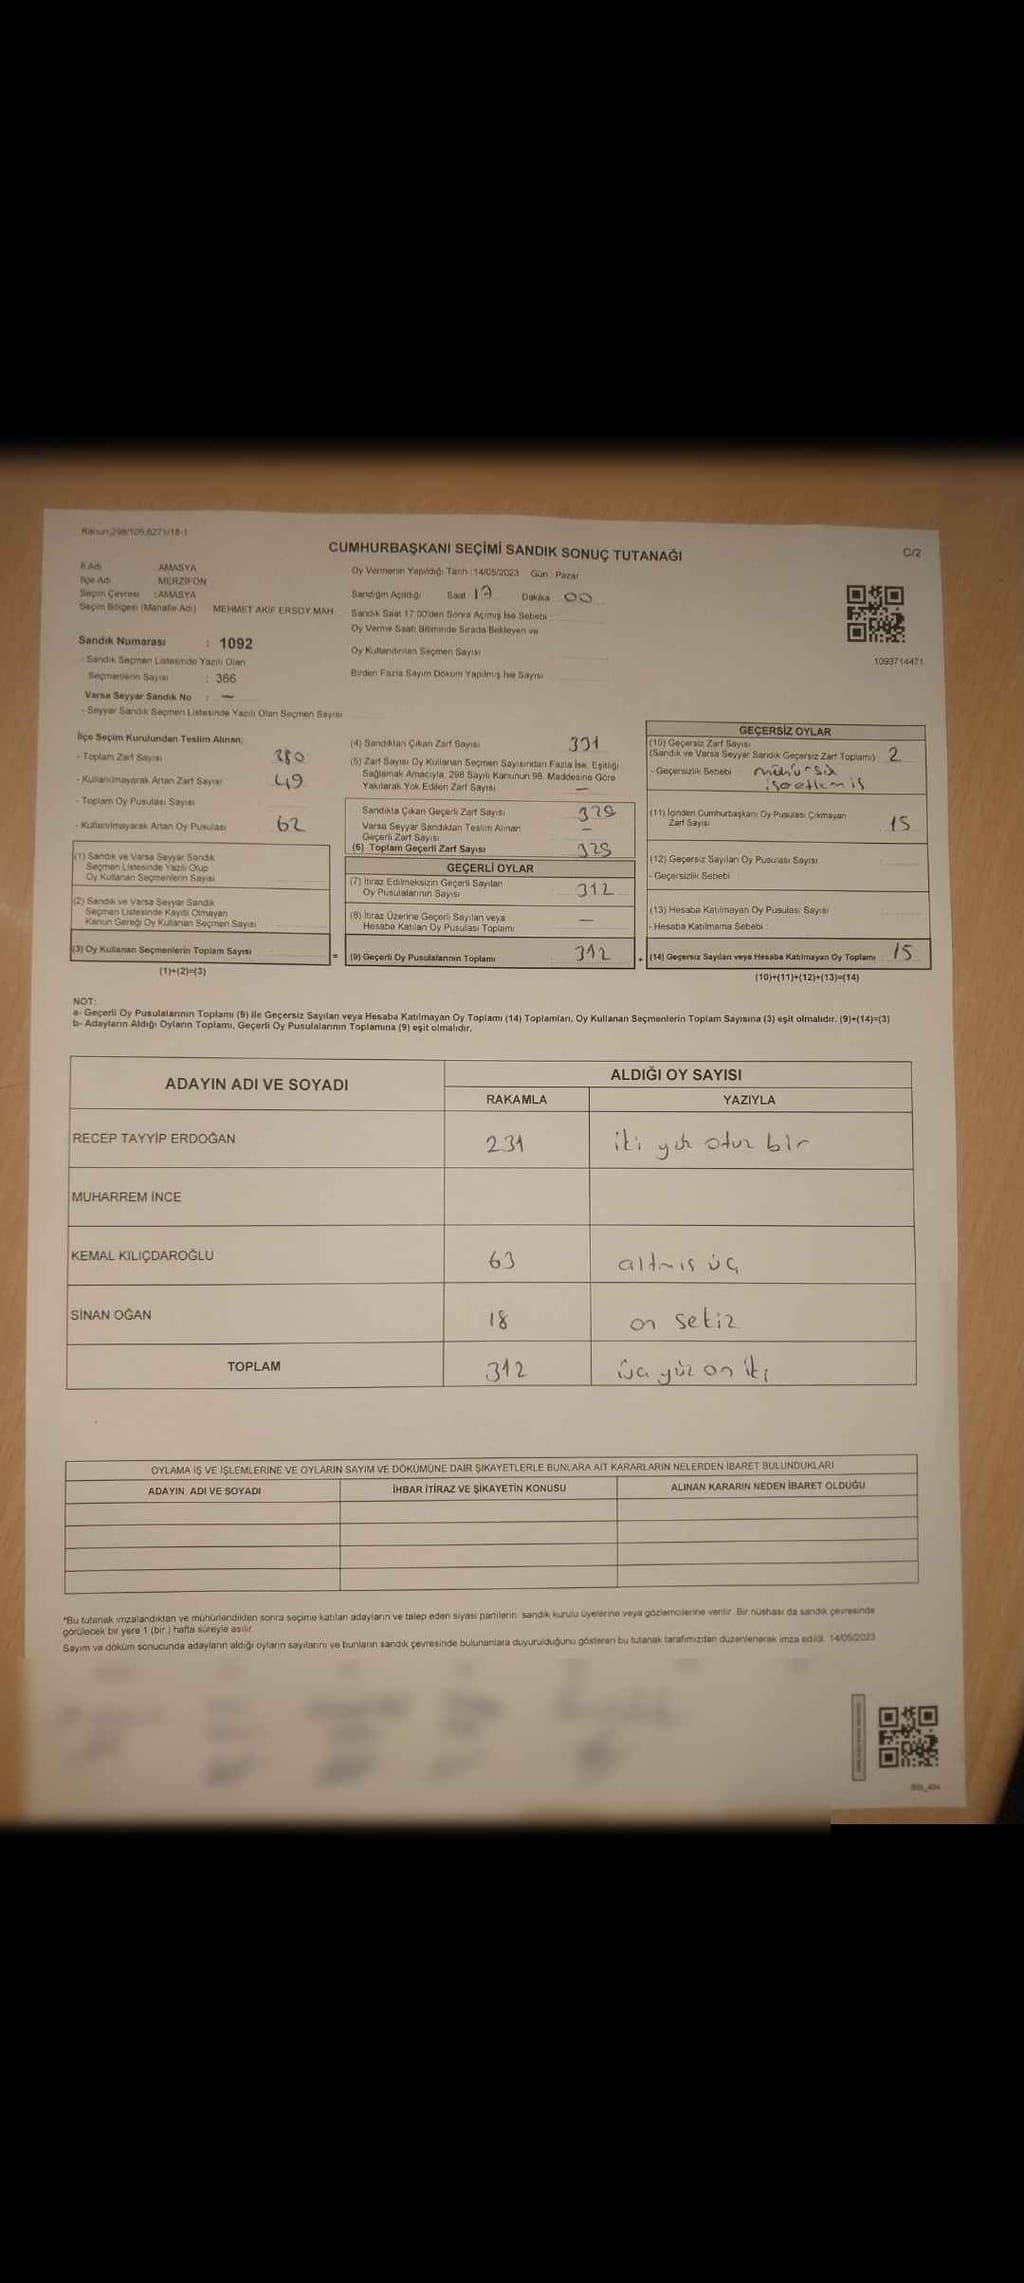 Kanun:298/105,6271/18-1
CUMHURBAŞKANI SEÇİMİ SANDIK SONUÇ TUTANAĞI
C/2
İl Adı : AMASYA
İlçe Adı : MERZİFON
Seçim Çevresi : AMASYA
Seçim Bölgesi (Mahalle Adı) MEHMET AKİF ERSOY MAH.
Sandık Numarası : 1092
- Sandık Seçmen Listesinde Yazılı Olan
Seçmenlerin Sayısı : 366
Varsa Seyyar Sandık No : —
- Seyyar Sandık Seçmen Listesinde Yazılı Olan Seçmen Sayısı
Oy Vermenin Yapıldığı Tarih : 14/05/2023 Gün : Pazar
Sandığın Açıldığı Saat 17 Dakika : 00
Sandık Saat 17:00'den Sonra Açılmış İse Sebebi :
Oy Verme Saati Bitiminde Sırada Bekleyen ve
Oy Kullandırılan Seçmen Sayısı
Birden Fazla Sayım Döküm Yapılmış İse Sayısı
1093714471
İlçe Seçim Kurulundan Teslim Alınan;
- Toplam Zarf Sayısı 380
- Kullanılmayarak Artan Zarf Sayısı 49
- Toplam Oy Pusulası Sayısı
- Kullanılmayarak Artan Oy Pusulası 62
(1) Sandık ve Varsa Seyyar Sandık
Seçmen Listesinde Yazılı Olup
Oy Kullanan Seçmenlerin Sayısı
(2) Sandık ve Varsa Seyyar Sandık
Seçmen Listesinde Kayıtlı Olmayan
Kanun Gereği Oy Kullanan Seçmen Sayısı
(3) Oy Kullanan Seçmenlerin Toplam Sayısı
(1)+(2)=(3)
=
(4) Sandıktan Çıkan Zarf Sayısı 331
(5) Zarf Sayısı Oy Kullanan Seçmen Sayısından Fazla İse, Eşitliği
Sağlamak Amacıyla, 298 Sayılı Kanunun 98. Maddesine Göre
Yakılarak Yok Edilen Zarf Sayısı —
Sandıkta Çıkan Geçerli Zarf Sayısı 329
Varsa Seyyar Sandıktan Teslim Alınan
Geçerli Zarf Sayısı —
(6) Toplam Geçerli Zarf Sayısı 329
GEÇERLİ OYLAR
(7) İtiraz Edilmeksizin Geçerli Sayılan
Oy Pusulalarının Sayısı 312
(8) İtiraz Üzerine Geçerli Sayılan veya
Hesaba Katılan Oy Pusulası Toplamı —
(9) Geçerli Oy Pusulalarının Toplamı 312
+
GEÇERSİZ OYLAR
(10) Geçersiz Zarf Sayısı
(Sandık ve Varsa Seyyar Sandık Geçersiz Zarf Toplamı) : 2
- Geçersizlik Sebebi : mühürsüz
(11) İçinden Cumhurbaşkanı Oy Pusulası Çıkmayan
Zarf Sayısı 15
(12) Geçersiz Sayılan Oy Pusulası Sayısı
- Geçersizlik Sebebi :
(13) Hesaba Katılmayan Oy Pusulası Sayısı
- Hesaba Katılmama Sebebi :
(14) Geçersiz Sayılan veya Hesaba Katılmayan Oy Toplamı 15
(10)+(11)+(12)+(13)=(14)
NOT:
a- Geçerli Oy Pusulalarının Toplamı (9) ile Geçersiz Sayılan veya Hesaba Katılmayan Oy Toplamı (14) Toplamları, Oy Kullanan Seçmenlerin Toplam Sayısına (3) eşit olmalıdır. (9)+(14)=(3)
b- Adayların Aldığı Oyların Toplamı, Geçerli Oy Pusulalarının Toplamına (9) eşit olmalıdır.
ADAYIN ADI VE SOYADI
ALDIĞI OY SAYISI
RAKAMLA YAZIYLA
RECEP TAYYİP ERDOĞAN 231 iki yüz otuz bir
MUHARREM İNCE
KEMAL KILIÇDAROĞLU 63 altmış üç
SİNAN OĞAN 18 on sekiz
TOPLAM 312 üç yüz on iki
OYLAMA İŞ VE İŞLEMLERİNE VE OYLARIN SAYIM VE DÖKÜMÜNE DAİR ŞİKAYETLERLE BUNLARA AİT KARARLARIN NELERDEN İBARET BULUNDUKLARI
ADAYIN ADI VE SOYADI İHBAR İTİRAZ VE ŞİKAYETİN KONUSU ALINAN KARARIN NEDEN İBARET OLDUĞU
*Bu tutanak imzalandıktan ve mühürlendikten sonra seçime katılan adayların ve talep eden siyasi partilerin sandık kurulu üyelerine veya gözlemcilerine verilir. Bir nüshası da sandık çevresinde
görülecek bir yere 1 (bir) hafta süreyle asılır.
Sayım ve döküm sonucunda adayların aldığı oyların sayılarını ve bunların sandık çevresinde bulunanlara duyurulduğunu gösteren bu tutanak tarafımızdan düzenlenerek imza edildi. 14/05/2023